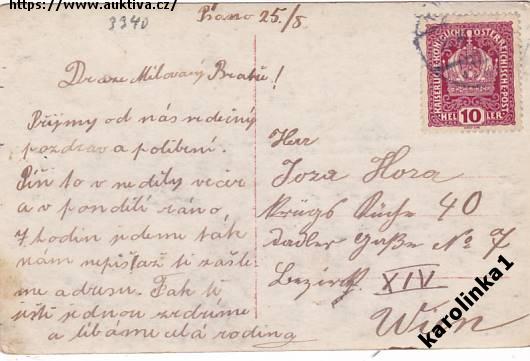 https://www.auktiva.cz/
3340
Psano 25./8
Draze Milovaný Bratře!
Přijmy od nás srdečný
pozdrav a políbení.
Píši to v neděly večír
a v pondělí ráno
7 hodin jedeme ták
nám nepiš až ti zašle
me adresu. Tak tě
ještě jednou zdravíme
a líbáme celá rodina
KAISERLICHE KÖNIGLICHE ÖSTERREICHISCHE POST
HEL 10 LER
Herr
Joza Hora
Krügs Küche 40
Stadler Gaße No 7
Bezirk XIV
Wien
karolinka1